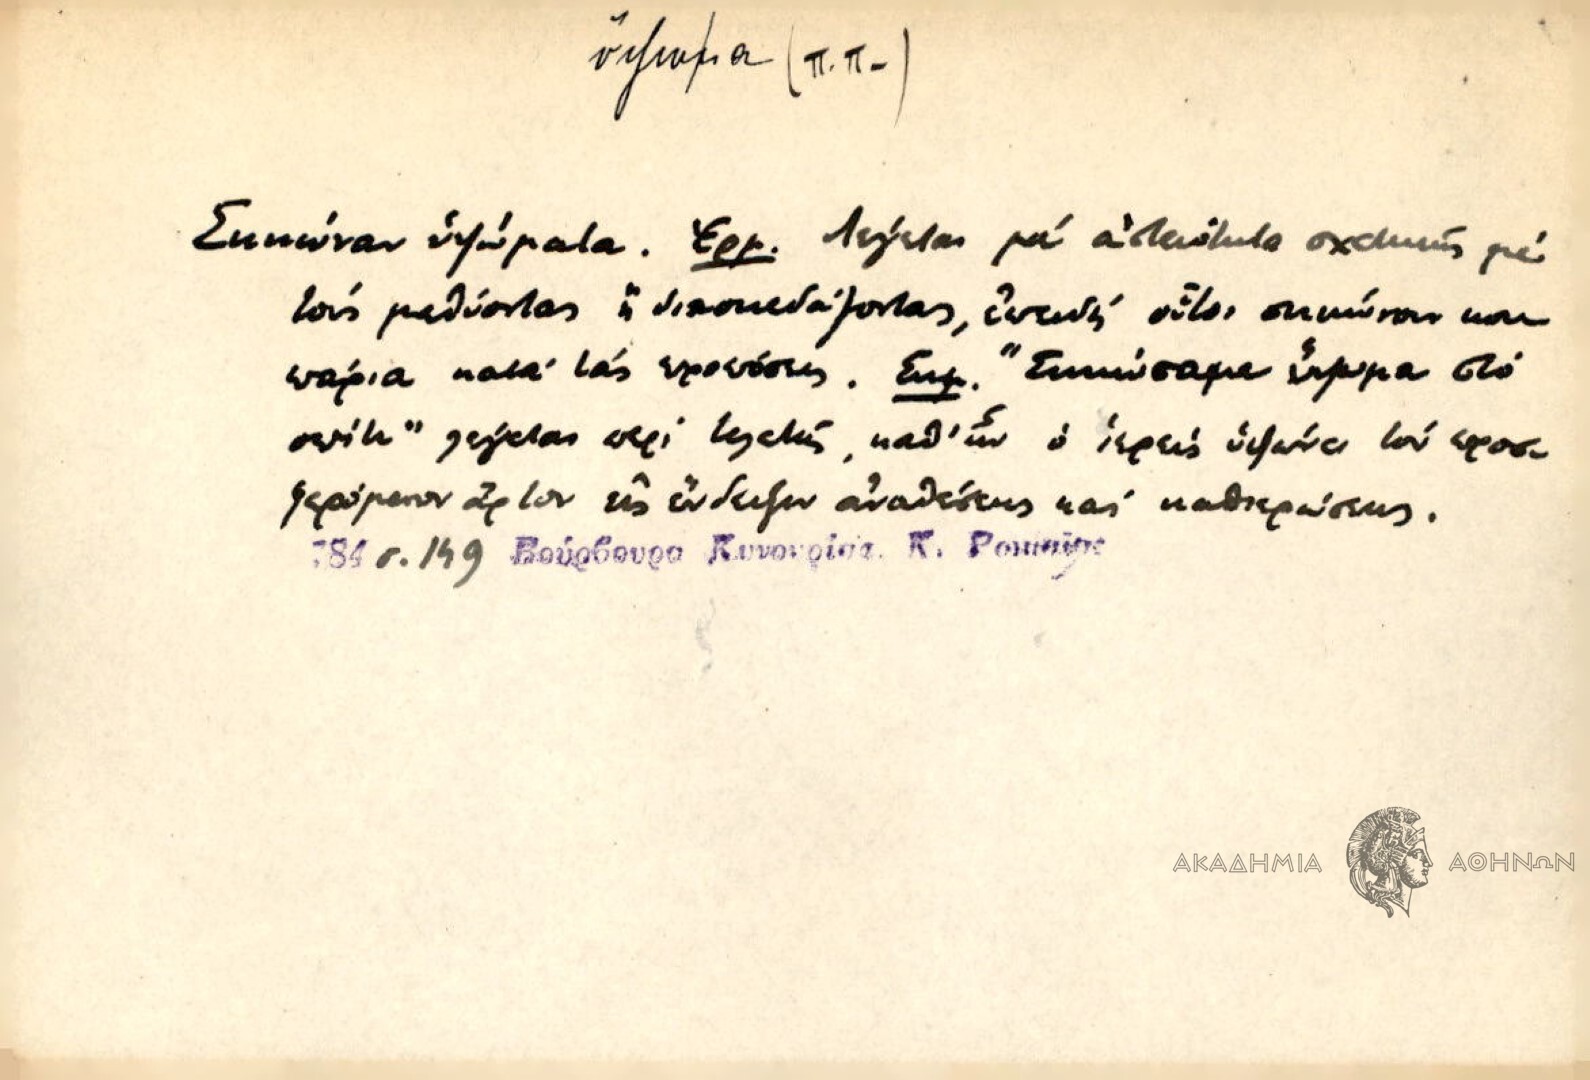 ὕψωμα (π.π.)
Σηκώναν ὑψώματα. Ἑρμ. Λέγεται μέ ἀστειότητα σχετικῶς μέ
τούς μεθύοντας ἤ διασκεδάζοντας, ἐπειδή οὗτοι σηκώνουν κου
πάρια κατά τάς προπόσεις. Σημ. "Σηκώσαμε ὕψωμα στό
σπίτι" λέγεται περί τελετῆς, καθ' ἥν ὁ ἱερεύς ὑψώνει τόν προσ-
φερόμενον ἄρτον εἰς ἔνδειξιν ἀναθέσεως καί καθιερώσεως.
784 σ. 149 Βούρβουρα Κυνουρίας. Κ. Ρωμαῖος
ΑΚΑΔΗΜΙΑ ΑΘΗΝΩΝ